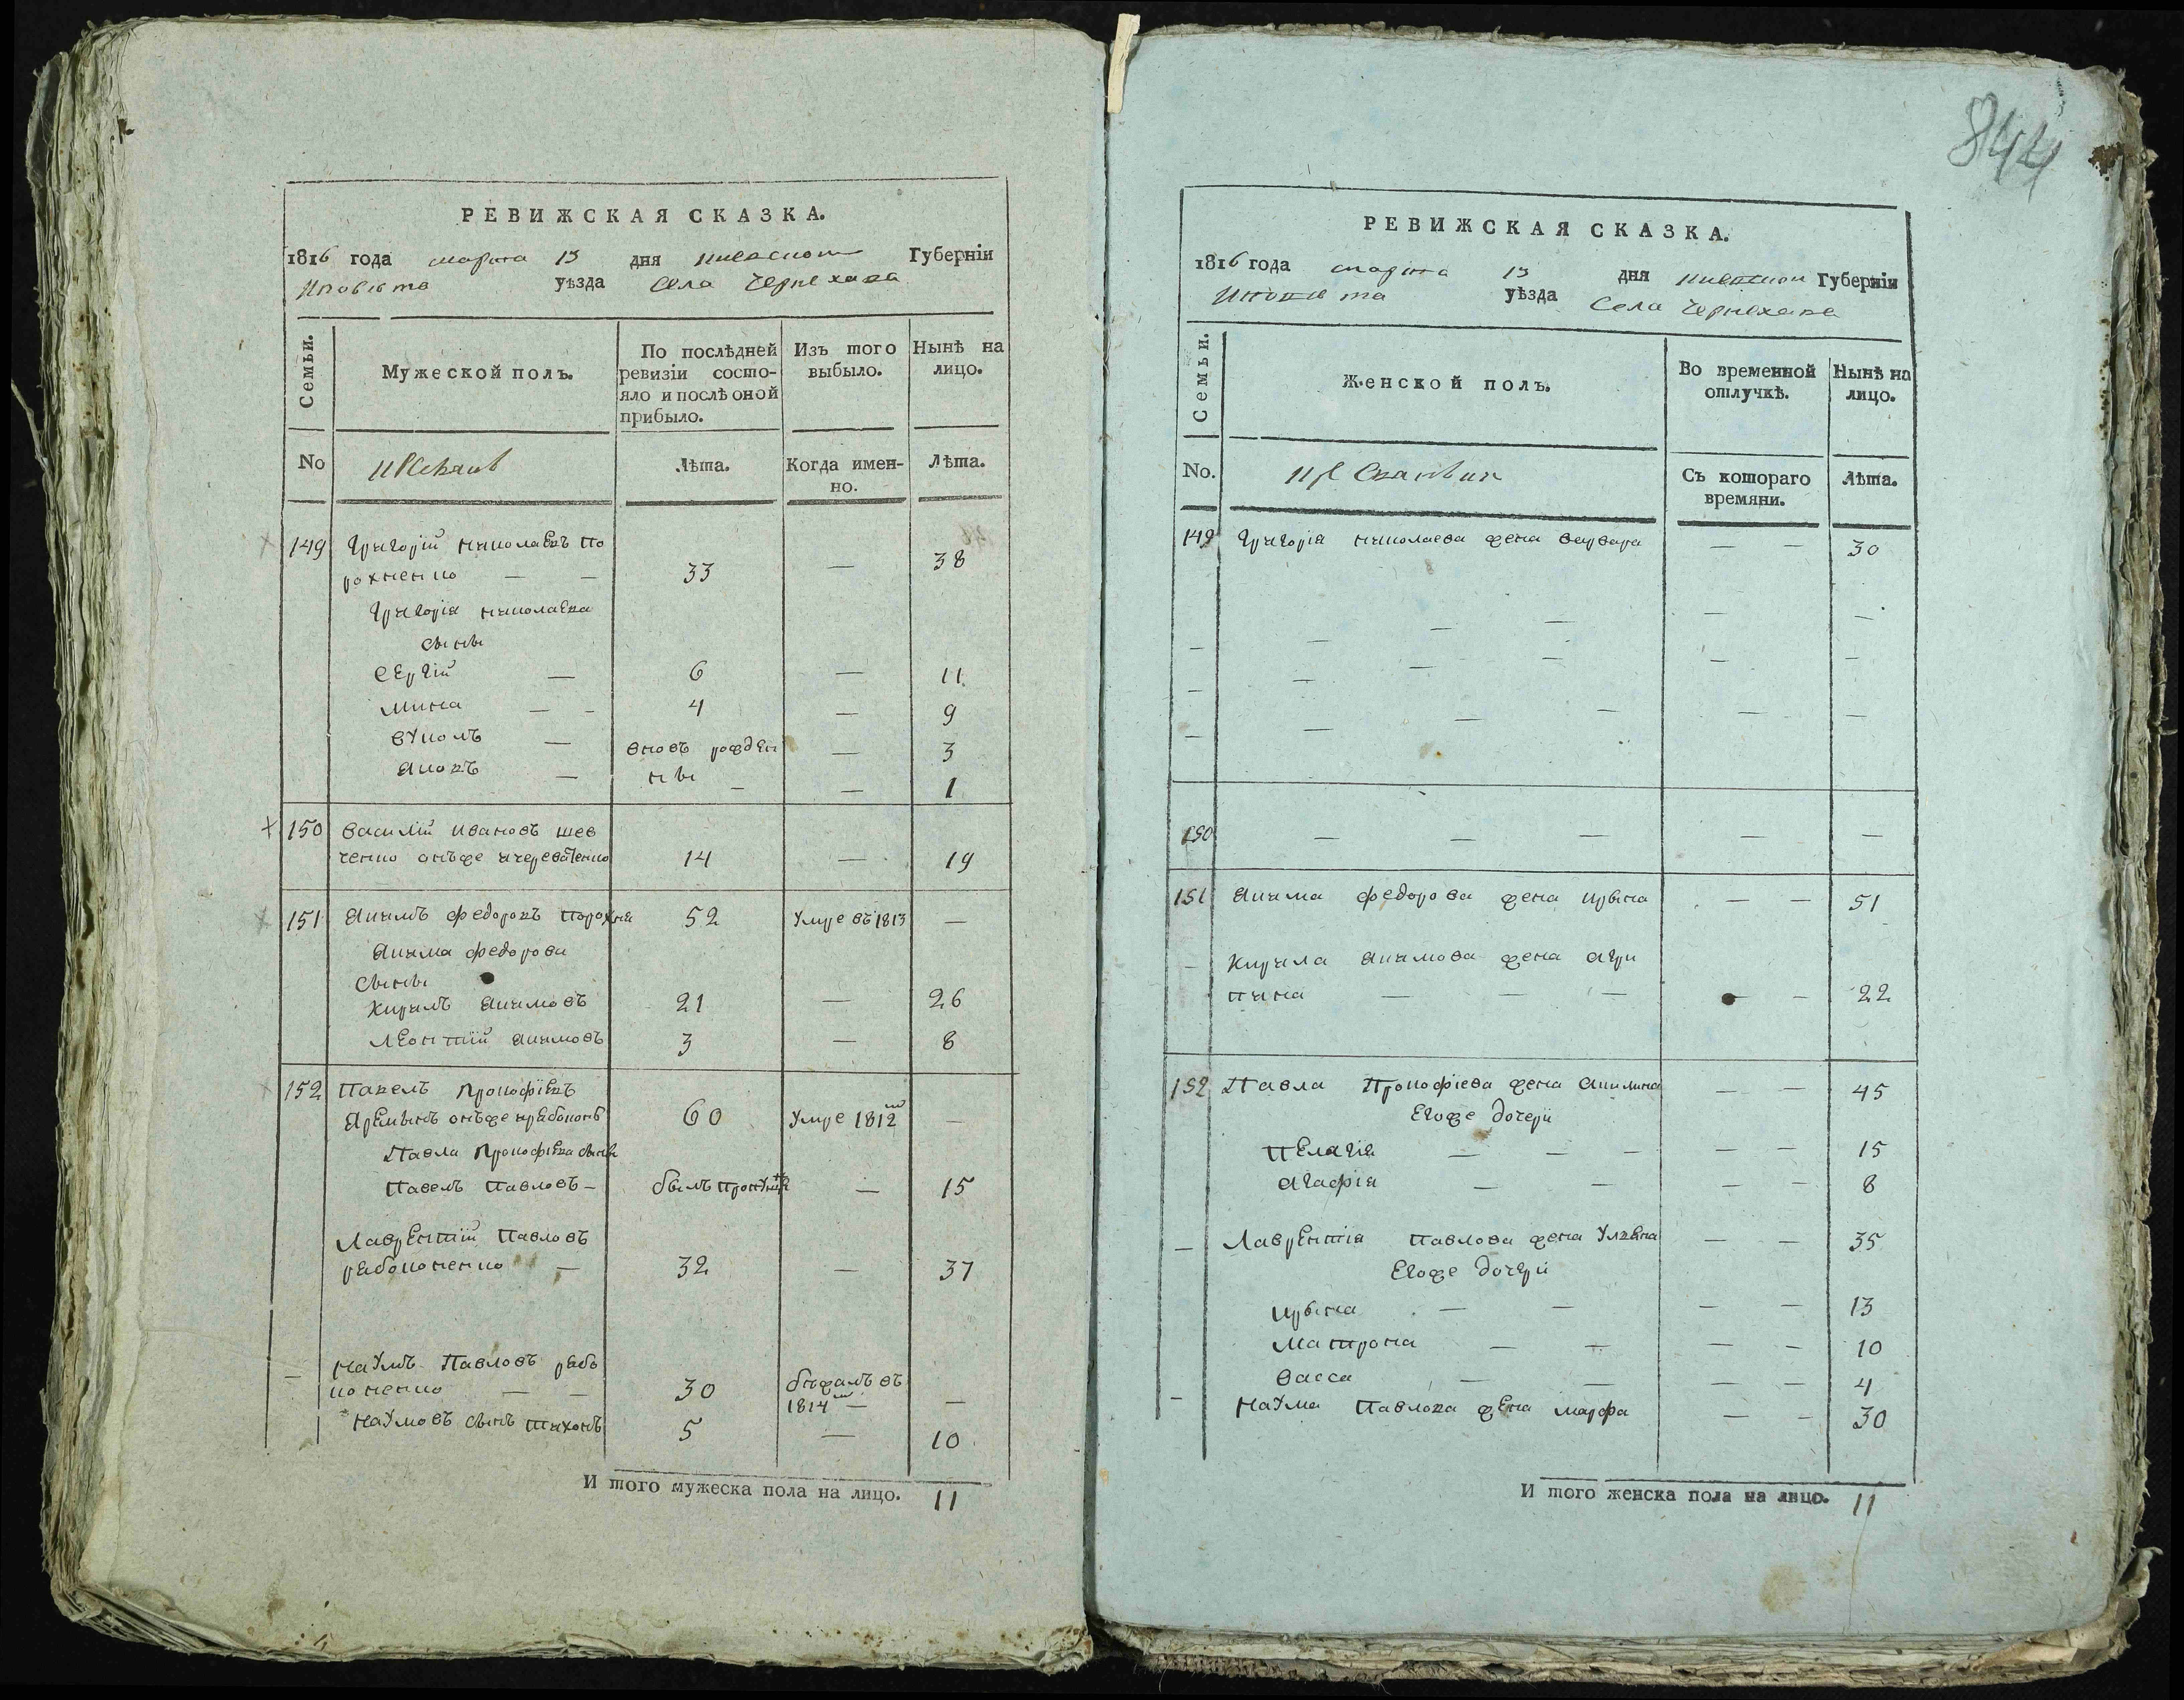 РЕВИЖСКАЯ СКАЗКА.
1816 года марта 13 дня киевской Губерніи
И повѣта уѣзда Села Чернехова
Семьи.
Мужеской полъ.
По послѣдней ревизіи состо-
яло и послѣ оной
прибыло.
Изъ того
выбыло.
Нынѣ на
лицо.
No
Лѣта.
Когда имен-
но.
Лѣта.
149 Григорій николаевъ по
рохненко — — 33 — 38
Григорія николаева
сыны
Сергій — 6 — 11
мина — — 4 — 9
вуколъ — вновь рожден — 3
яковъ — ны — — 1
150 василій ивановъ шев
ченко онъже 14 — 19
151 Якимъ федоровъ порохня 52 умре въ 1813 —
Якима федорова
сыны
Кирилъ якимовъ 21 — 26
Леонтій якимовъ 3 — 8
152 Павелъ прокофіевъ
онъже 60 умре 1812го —
Павла прокофіева сыны
Павелъ Павловъ — былъ — 15
Лаврентій Павловъ
рябоконенко — 32 — 37
— наумъ Павловъ рябо
коненко — — 30 бѣжалъ въ
1814го — —
наумовъ сынъ тихонъ 5 — 10
И того мужеска пола на лицо. 11
844
РЕВИЖСКАЯ СКАЗКА.
1816 года марта 13 дня киевской Губерніи
И повѣта уѣзда Села Чернехова
Семьи.
Женской полъ.
Во временной
отлучкѣ.
Нынѣ на
лицо.
No.
Съ котораго
времяни.
Лѣта.
149 Григорія николаева жена варвара — — 30
150 — — — — —
151 Якима федорова жена ирына — — 51
— Кирила якимова жена агри
пина — — — — — 22
152 Павла Прокофіева жена акилина — — 45
Егоже дочери
Пелагія — — — — — 15
Агафія — — — — 8
— Лаврентія павлова жена уляна — — 35
Егоже дочери
ирына — — — — 13
Матрона — — — — 10
васса — — — — 4
— наума павлова жена марфа — — 30
И того женска пола на лицо. 11